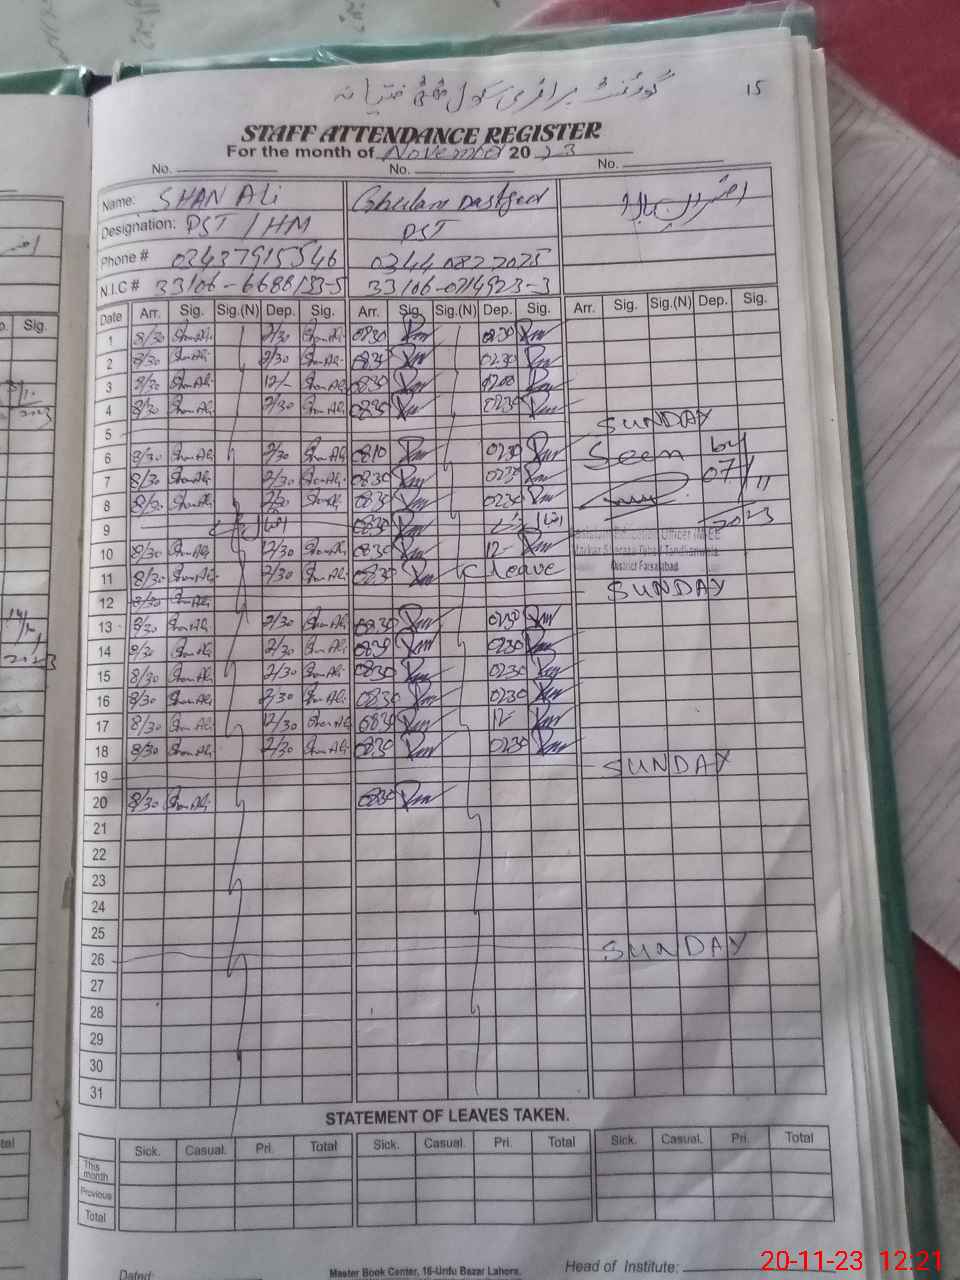 15
STAFF ATTENDANCE REGISTER
For the month of November 2023
No. No. No.
Name: SHAN ALi Ghulam Dastgeer
Designation: PST / HM PST
Phone # 03437915546 0344 0827025
N.I.C # 33106-6688153-5 33106-0214923-3
Date Arr. Sig. Sig.(N) Dep. Sig. Arr. Sig. Sig.(N) Dep. Sig. Arr. Sig. Sig.(N) Dep. Sig.
1 8/30 Shan Ali 2/30 Shan Ali 0830 0230
2 8/30 Shan Ali 2/30 Shan Ali 0830 0230
3 8/30 Shan Ali 12/- Shan Ali 0830 1200
4 8/30 Shan Ali 2/30 Shan Ali 0830 0230
5 SUNDAY
6 8/30 Shan Ali 2/30 Shan Ali 0810 0230 Seen by
7 8/30 Shan Ali 2/30 Shan Ali 0830 0230 07/11
8 8/30 Shan Ali 2/30 Shan Ali 0830 0230 2023
9 0830
Assistant Education Officer
District Faisalabad
10 8/30 Shan Ali 12/30 Shan Ali 0830 12-
11 8/30 Shan Ali 2/30 Shan Ali 0830 leave
12 8/30 Shan Ali SUNDAY
13 8/30 Shan Ali 2/30 Shan Ali 0830 0230
14 8/30 Shan Ali 2/30 Shan Ali 0830 0230
15 8/30 Shan Ali 2/30 Shan Ali 0830 0230
16 8/30 Shan Ali 2/30 Shan Ali 0830 0230
17 8/30 Shan Ali 12/30 Shan Ali 0830 12-
18 8/30 Shan Ali 2/30 Shan Ali 0830 0230
19 SUNDAY
20 8/30 Shan Ali 0830
21
22
23
24
25
26 SUNDAY
27
28
29
30
31
STATEMENT OF LEAVES TAKEN.
Sick. Casual. Pri. Total Sick. Casual. Pri. Total Sick. Casual. Pri. Total
This month
Previous
Total
Dated: Master Book Center, 16-Urdu Bazar Lahore. Head of Institute:
20-11-23 12:21